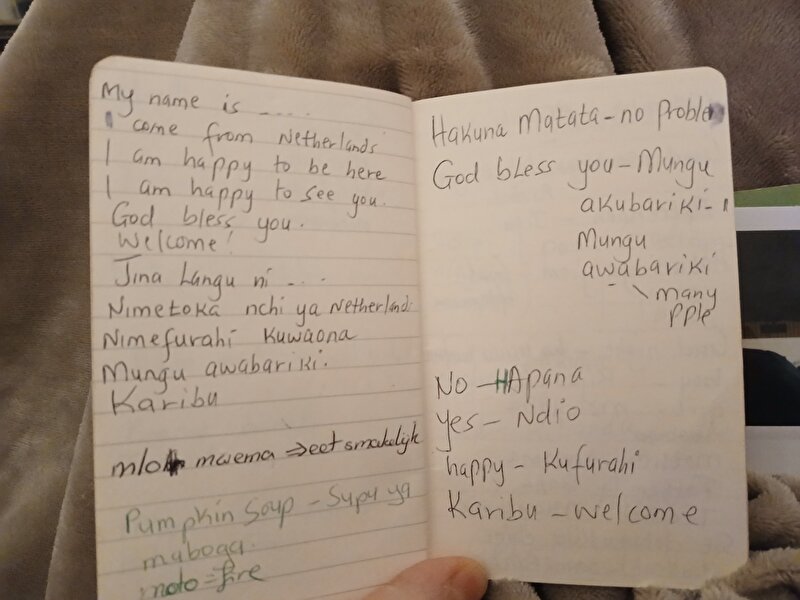 My name is .....
I come from Netherlands
I am happy to be here
I am happy to see you.
God bless you.
Welcome!
Jina Langu ni ....
Nimetoka nchi ya Netherlands
Nimefurahi kuwaona
Mungu awabariki.
Karibu
mlo mwema ⇒ eet smakelijk
Pumpkin Soup - Supu ya
maboga.
moto = fire
Hakuna Matata - no problem
God bless you - Mungu
akubariki - 1
Mungu
awabariki
many
pple
NO - HApana
yes - Ndio
happy - Kufurahi
Karibu - welcome